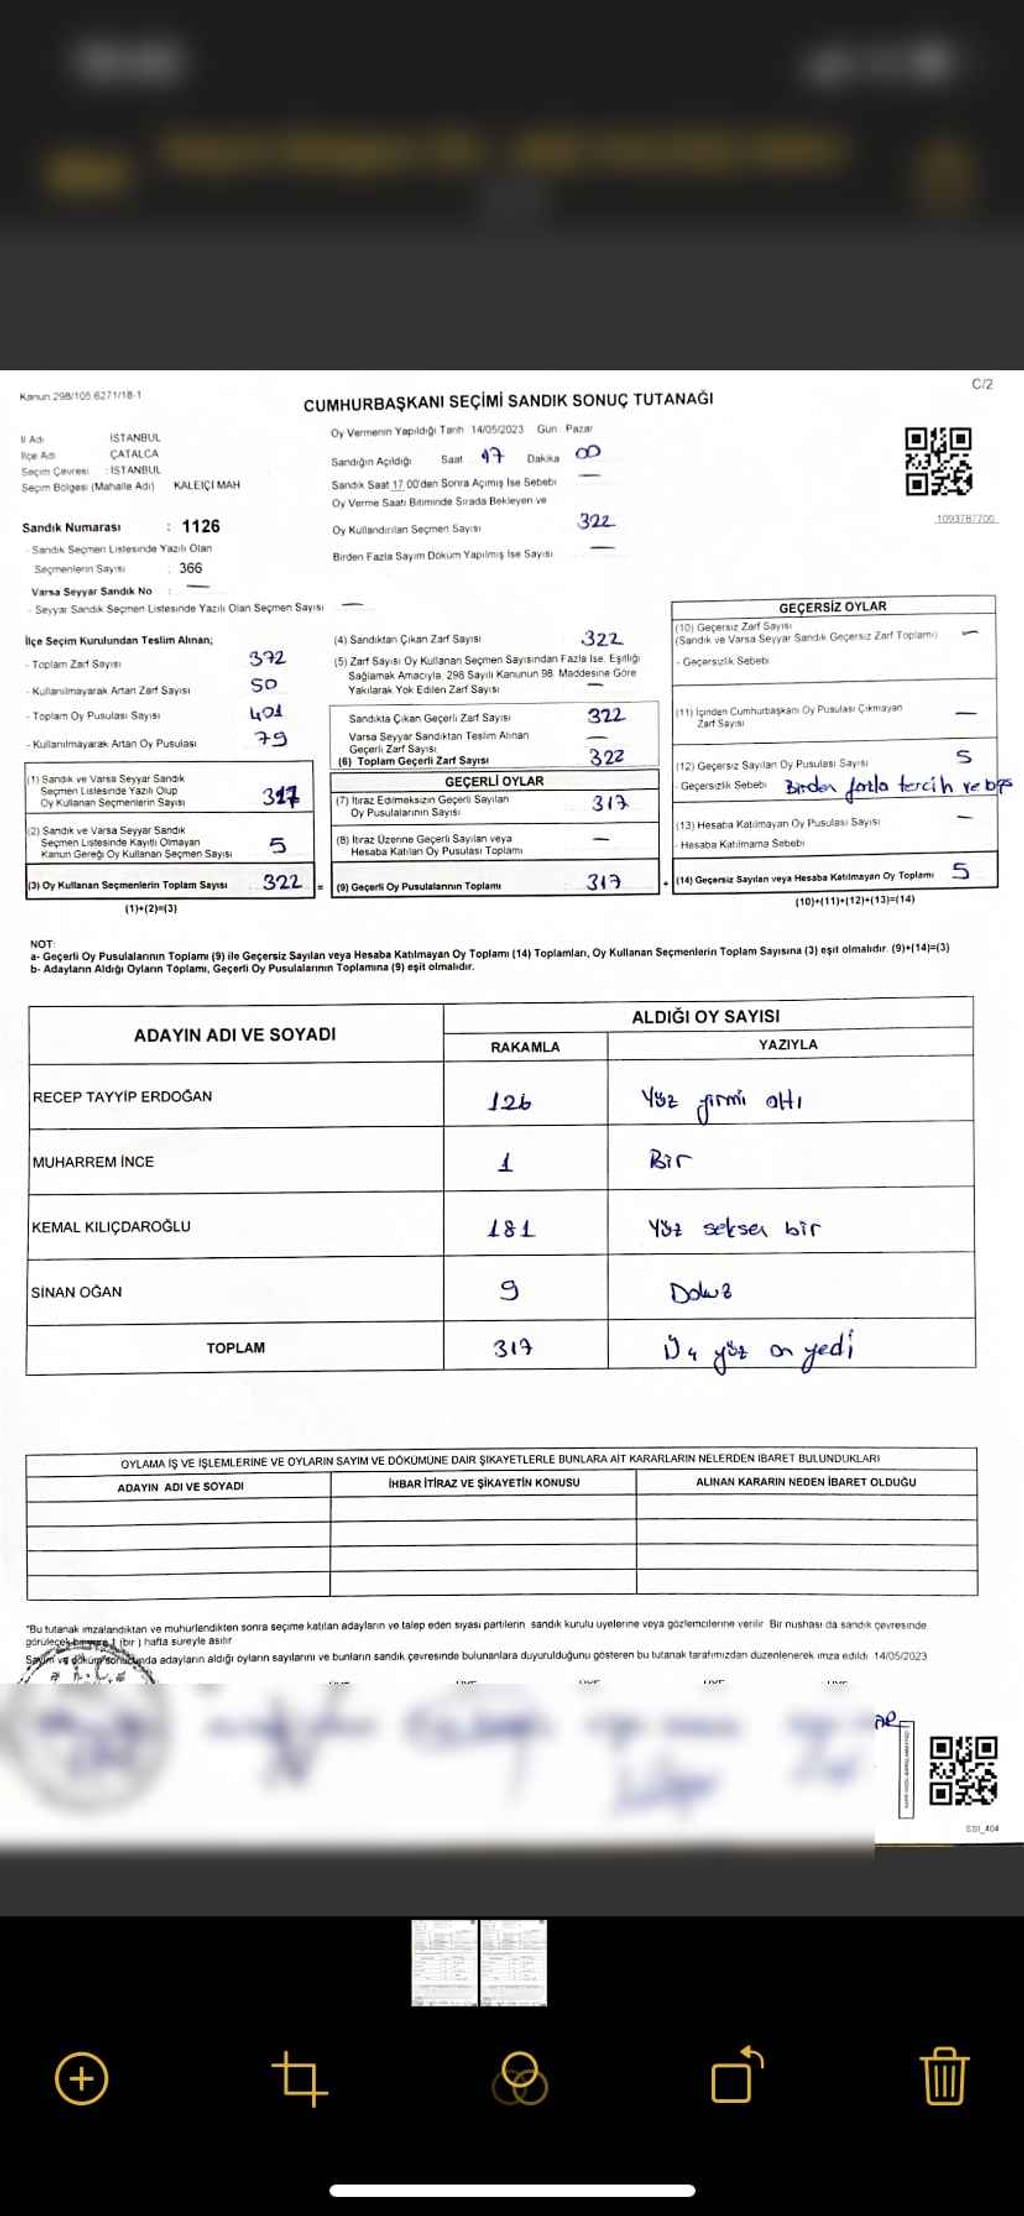 Kanun 298/105 6271/18-1
C/2
CUMHURBAŞKANI SEÇİMİ SANDIK SONUÇ TUTANAĞI
İl Adı İSTANBUL
İlçe Adı ÇATALCA
Seçim Çevresi : İSTANBUL
Seçim Bölgesi (Mahalle Adı) KALEİÇİ MAH
Sandık Numarası : 1126
- Sandık Seçmen Listesinde Yazılı Olan
Seçmenlerin Sayısı : 366
Varsa Seyyar Sandık No : —
- Seyyar Sandık Seçmen Listesinde Yazılı Olan Seçmen Sayısı —
Oy Vermenin Yapıldığı Tarih 14/05/2023 Gün Pazar
Sandığın Açıldığı Saat 17 Dakika 00
Sandık Saat 17 00'den Sonra Açımış İse Sebebi —
Oy Verme Saati Bitiminde Sırada Bekleyen ve
Oy Kullandırılan Seçmen Sayısı 322
Birden Fazla Sayım Döküm Yapılmış İse Sayısı —
1093787700
İlçe Seçim Kurulundan Teslim Alınan;
- Toplam Zarf Sayısı 372
- Kullanılmayarak Artan Zarf Sayısı 50
- Toplam Oy Pusulası Sayısı 401
- Kullanılmayarak Artan Oy Pusulası 79
(1) Sandık ve Varsa Seyyar Sandık
Seçmen Listesinde Yazılı Olup
Oy Kullanan Seçmenlerin Sayısı 317
(2) Sandık ve Varsa Seyyar Sandık
Seçmen Listesinde Kayıtlı Olmayan
Kanun Gereği Oy Kullanan Seçmen Sayısı 5
(3) Oy Kullanan Seçmenlerin Toplam Sayısı 322 =
(1)+(2)=(3)
(4) Sandıktan Çıkan Zarf Sayısı 322
(5) Zarf Sayısı Oy Kullanan Seçmen Sayısından Fazla İse, Eşitliği
Sağlamak Amacıyla, 298 Sayılı Kanunun 98. Maddesine Göre
Yakılarak Yok Edilen Zarf Sayısı —
Sandıkta Çıkan Geçerli Zarf Sayısı 322
Varsa Seyyar Sandıktan Teslim Alınan
Geçerli Zarf Sayısı —
(6) Toplam Geçerli Zarf Sayısı 322
GEÇERLİ OYLAR
(7) İtiraz Edilmeksizin Geçerli Sayılan
Oy Pusulalarının Sayısı 317
(8) İtiraz Üzerine Geçerli Sayılan veya
Hesaba Katılan Oy Pusulası Toplamı —
(9) Geçerli Oy Pusulalarının Toplamı 317 +
GEÇERSİZ OYLAR
(10) Geçersiz Zarf Sayısı
(Sandık ve Varsa Seyyar Sandık Geçersiz Zarf Toplamı) —
- Geçersizlik Sebebi
(11) İçinden Cumhurbaşkanı Oy Pusulası Çıkmayan
Zarf Sayısı —
(12) Geçersiz Sayılan Oy Pusulası Sayısı 5
- Geçersizlik Sebebi Birden fazla tercih ve boş
(13) Hesaba Katılmayan Oy Pusulası Sayısı —
- Hesaba Katılmama Sebebi
(14) Geçersiz Sayılan veya Hesaba Katılmayan Oy Toplamı 5
(10)+(11)+(12)+(13)=(14)
NOT:
a- Geçerli Oy Pusulalarının Toplamı (9) ile Geçersiz Sayılan veya Hesaba Katılmayan Oy Toplamı (14) Toplamları, Oy Kullanan Seçmenlerin Toplam Sayısına (3) eşit olmalıdır. (9)+(14)=(3)
b- Adayların Aldığı Oyların Toplamı, Geçerli Oy Pusulalarının Toplamına (9) eşit olmalıdır.
ADAYIN ADI VE SOYADI ALDIĞI OY SAYISI
RAKAMLA YAZIYLA
RECEP TAYYİP ERDOĞAN 126 Yüz yirmi altı
MUHARREM İNCE 1 Bir
KEMAL KILIÇDAROĞLU 181 Yüz seksen bir
SİNAN OĞAN 9 Dokuz
TOPLAM 317 Üç yüz on yedi
OYLAMA İŞ VE İŞLEMLERİNE VE OYLARIN SAYIM VE DÖKÜMÜNE DAİR ŞİKAYETLERLE BUNLARA AİT KARARLARIN NELERDEN İBARET BULUNDUKLARI
ADAYIN ADI VE SOYADI İHBAR İTİRAZ VE ŞİKAYETİN KONUSU ALINAN KARARIN NEDEN İBARET OLDUĞU
"Bu tutanak imzalandıktan ve mühürlendikten sonra seçime katılan adayların ve talep eden siyasi partilerin sandık kurulu üyelerine veya gözlemcilerine verilir Bir nüshası da sandık çevresinde
görülecek bir yere 1 (bir ) hafta süreyle asılır
Sayım ve döküm sonucunda adayların aldığı oyların sayılarını ve bunların sandık çevresinde bulunanlara duyurulduğunu gösteren bu tutanak tarafımızdan düzenlenerek imza edildi 14/05/2023
SSI_404